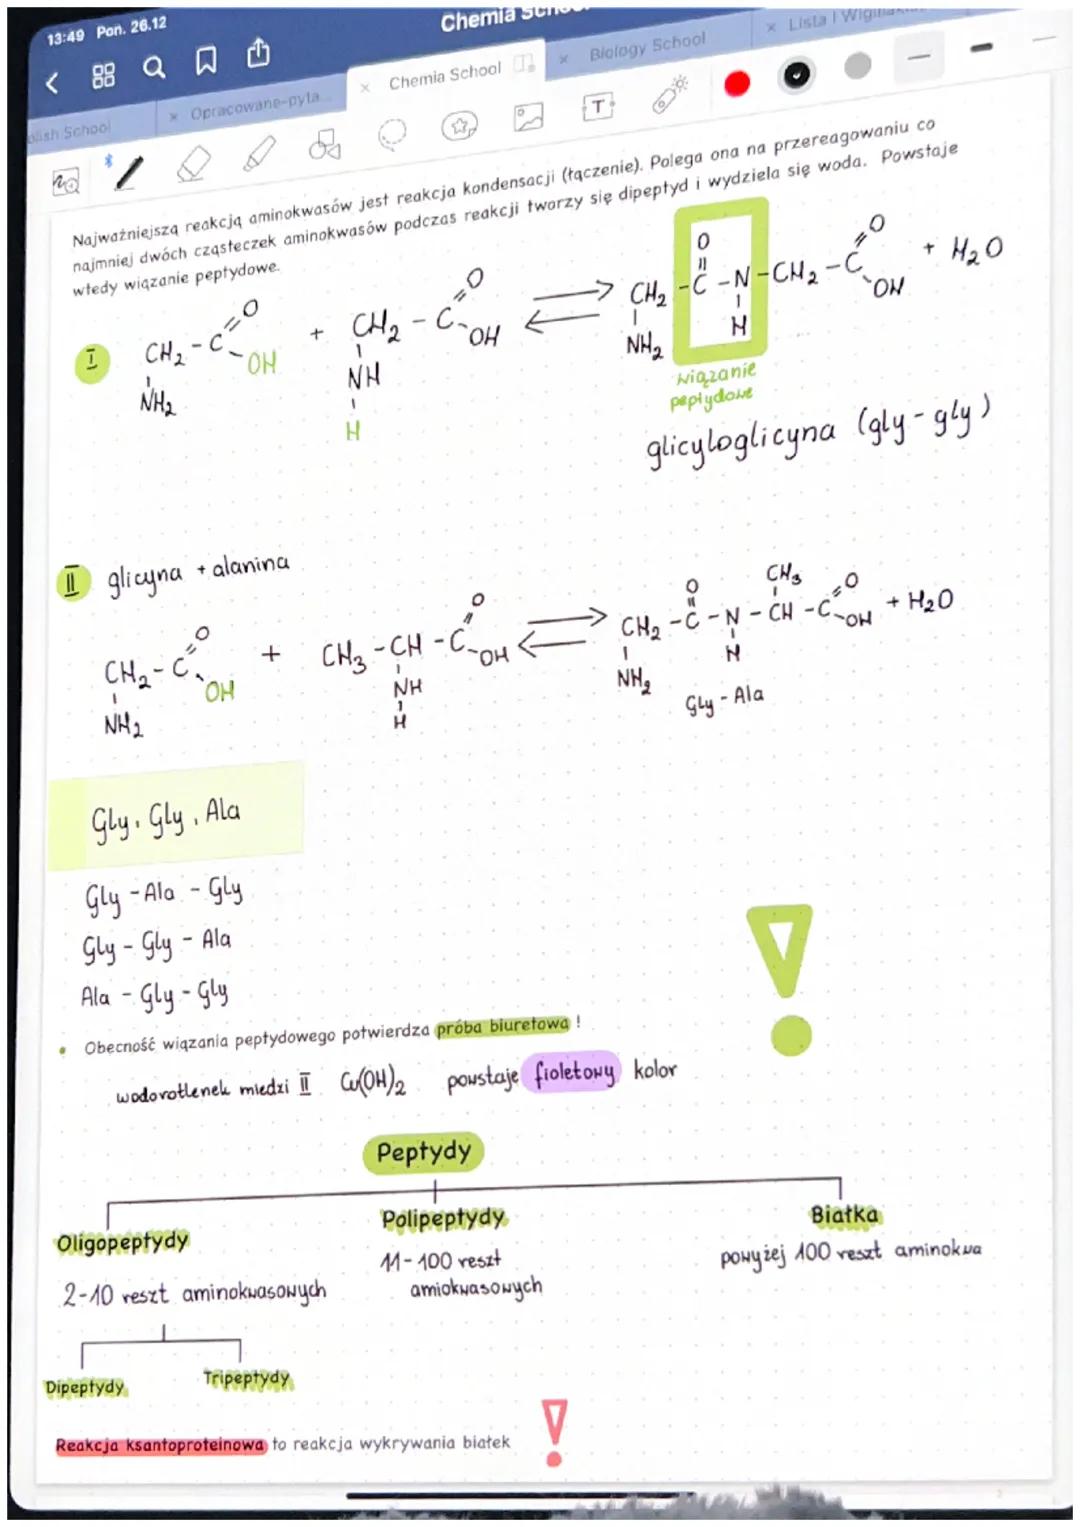 13:49 Pon. 26.12
Chemia
Opracowane-pyta...
× Chemia School
× Biology School
× Lista
Najważniejszą reakcją aminokwasów jest reakcja kondensacji (łączenie). Polega ona na przereagowaniu co
najmniej dwóch cząsteczek aminokwasów podczas reakcji tworzy się dipeptyd i wydziela się woda. Powstaje
wtedy wiązanie peptydowe.
I CH2 - C =O - OH + CH2 - C =O - OH ⇌ CH2 - C - N - CH2 - C =O OH + H2O
NH2 NH O H NH2
H
wiązanie
peptydowe
glicyloglicyna (gly - gly)
II glicyna + alanina
CH2 - C =O OH + CH3 - CH - C =O - OH ⇌ CH2 - C - N - CH - C =O - OH + H2O
NH2 NH O H CH3 NH2
H
Gly - Ala
Gly, Gly, Ala
Gly - Ala - Gly
Gly - Gly - Ala
Ala - Gly - Gly
• Obecność wiązania peptydowego potwierdza próba biuretowa !
wodorotlenek miedzi II Cu(OH)2 powstaje fioletowy kolor
Peptydy
Oligopeptydy
Polipeptydy
Białka
2-10 reszt aminokwasowych
11-100 reszt
amiokwasowych
powyżej 100 reszt aminokwa
Dipeptydy
Tripeptydy
Reakcja ksantoproteinowa to reakcja wykrywania białek